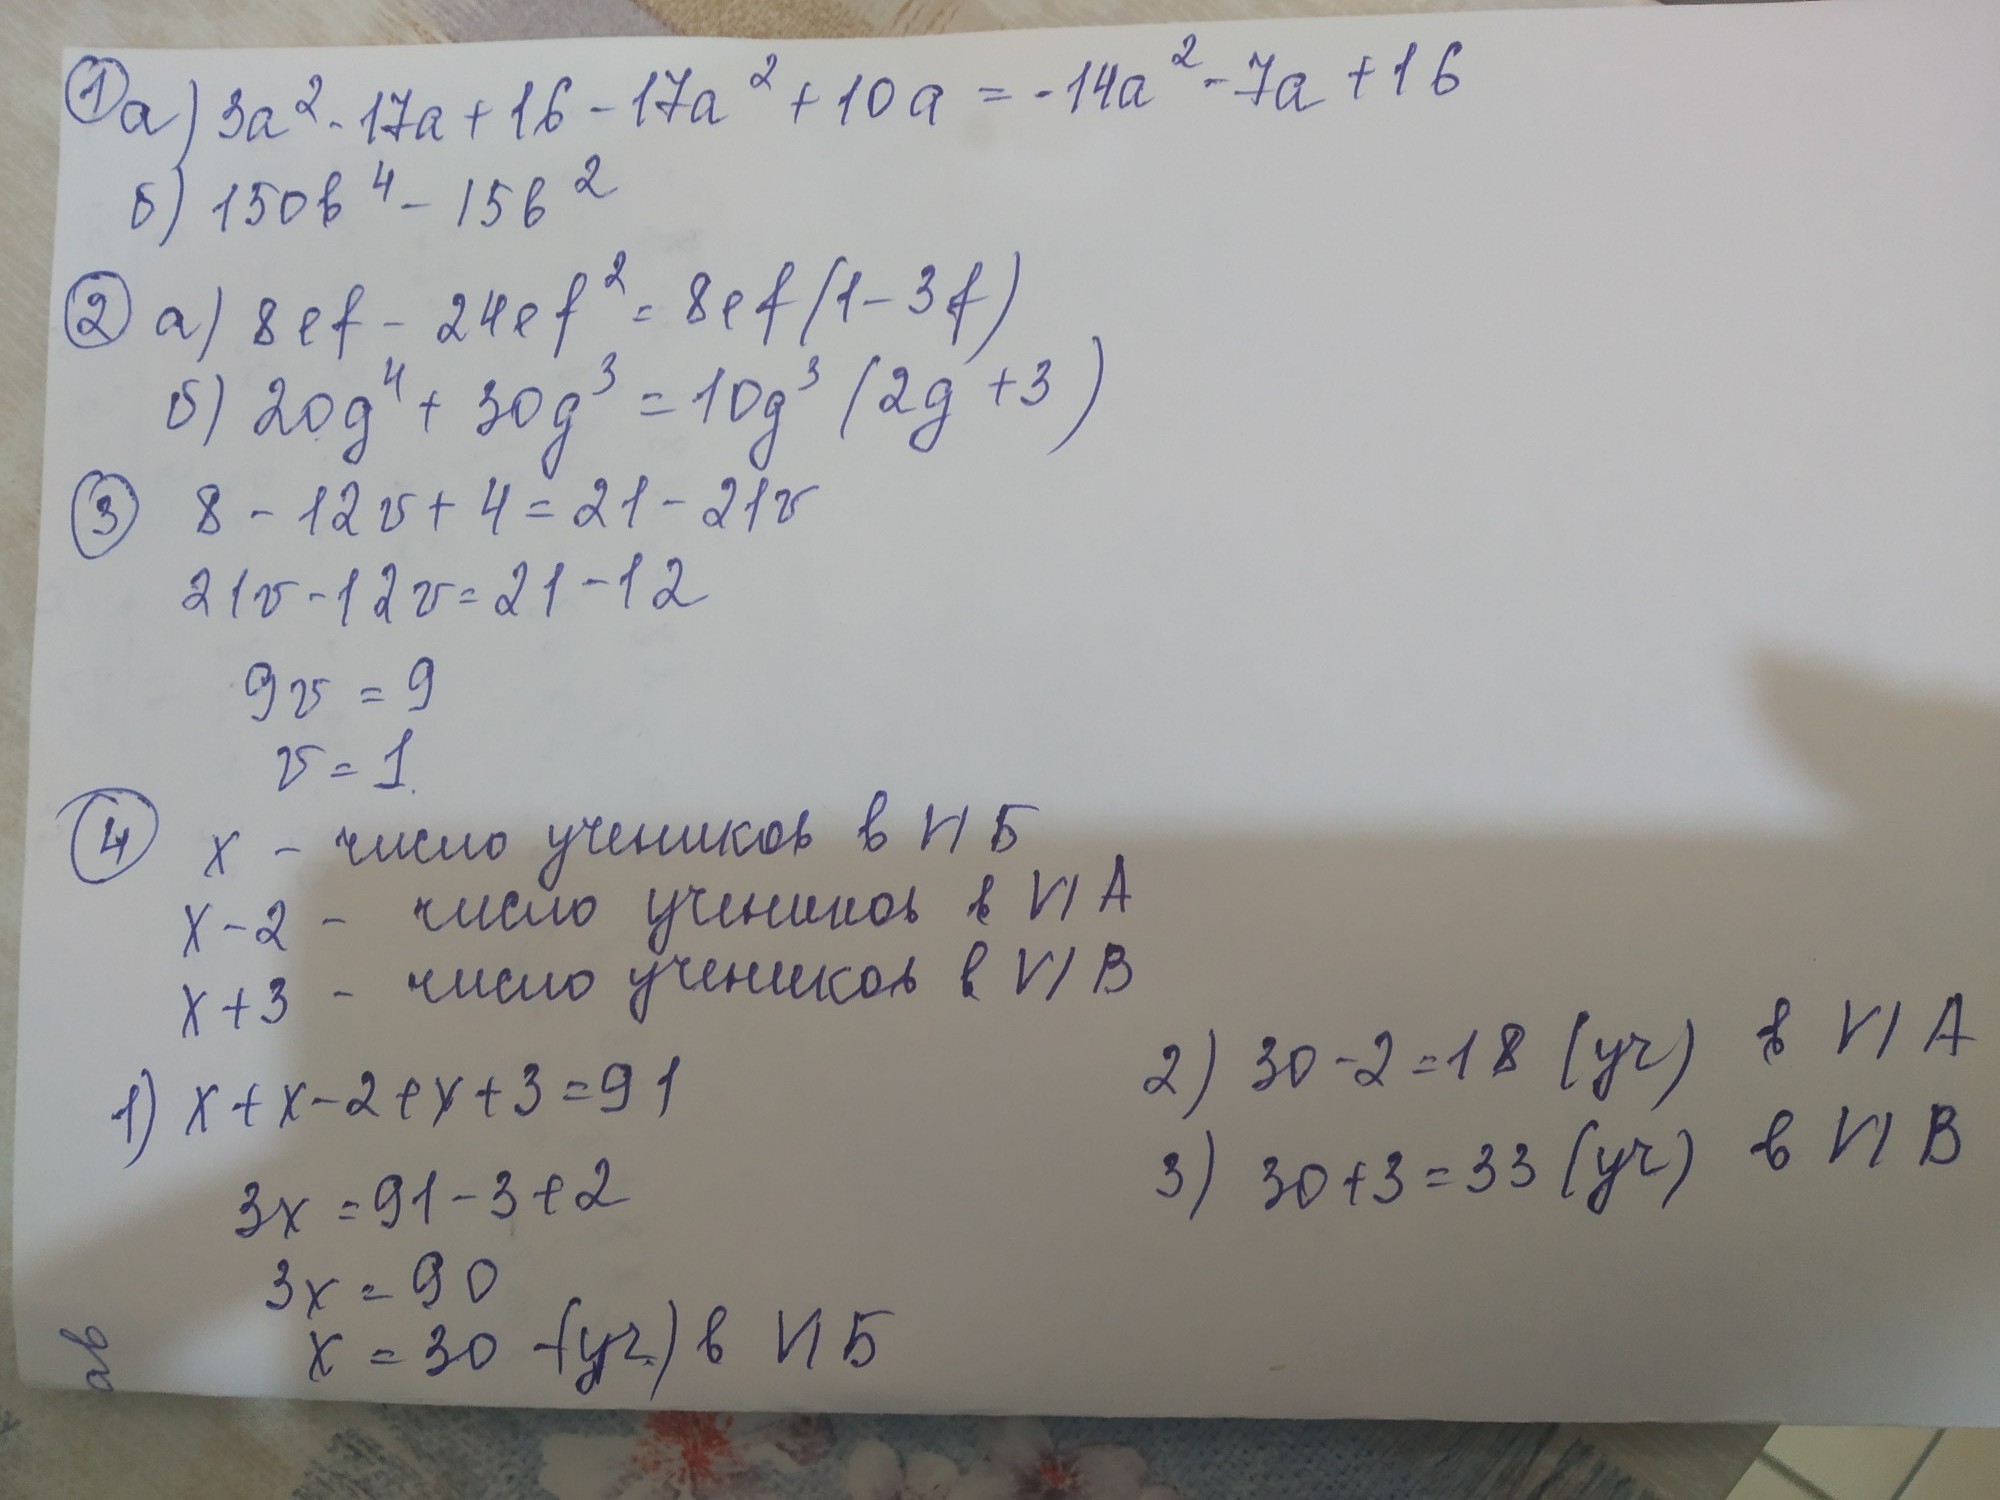 ① а) 3a² - 17a + 16 - 17a² + 10a = -14a² - 7a + 16
б) 150b⁴ - 15b²
② а) 8ef - 24ef² = 8ef(1 - 3f)
б) 20g⁴ + 30g³ = 10g³ (2g + 3)
③ 8 - 12v + 4 = 21 - 21v
21v - 12v = 21 - 12
9v = 9
v = 1.
④ x - число учеников в VI Б
x - 2 - число учеников в VI А
x + 3 - число учеников в VI В
1) x + x - 2 + x + 3 = 91
3x = 91 - 3 + 2
3x = 90
x = 30 - (уч.) в VI Б
2) 30 - 2 = 18 (уч) в VI А
3) 30 + 3 = 33 (уч) в VI В
ab